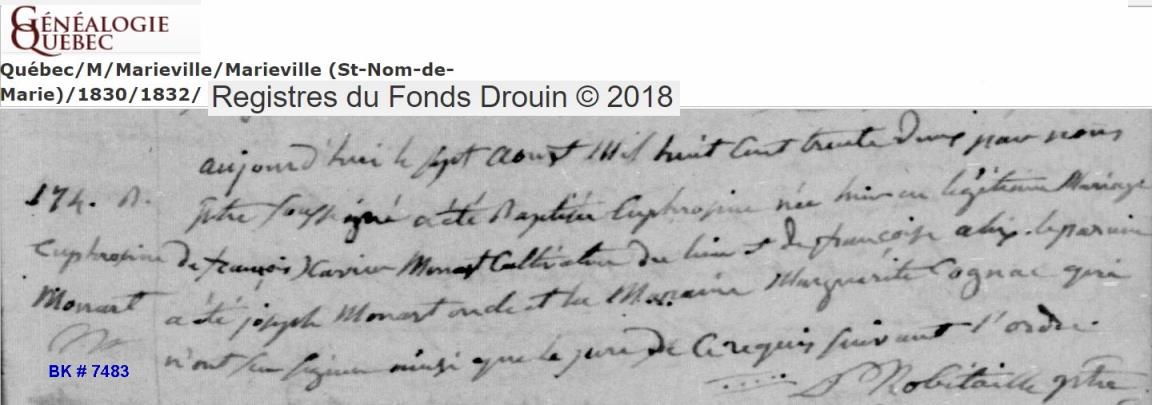 GÉNÉALOGIE
QUÉBEC
Québec/M/Marieville/Marieville (St-Nom-de-
Marie)/1830/1832/
Registres du Fonds Drouin © 2018
aujourd'hui le sept Aoust Mil huit Cent trente deux par nous
174. B.
ptre soussigné a été Baptisée Euphrosine née hier au légitime Mariage
Euphrosine
de françois Xavier Monast Cultivateur du lieu et de françoise Alix. le parain
Monast
a été joseph Monast oncle et la Maraine Marguerite Cognac qui
n'ont su signer ainsi que le pere de Ce requis suivant l'ordre.
BK # 7483
Robitaille ptre